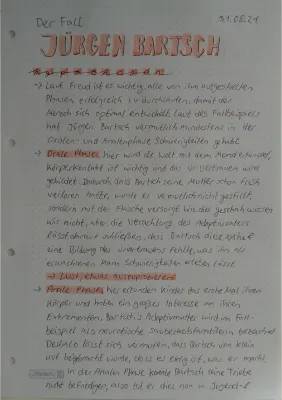 Der Fall 31.08.21
JÜRGEN BARTSCH
→ Laut Freud ist es wichtig, alle von ihm aufgestellten
Phasen erfolgreich zu durchlaufen, damit der
Mensch sich optimal entwickelt. Laut des Fallbeispiels
hat Jürgen Bartsch vermutlich mindestens in der
Oralen- und Analenphase Schwierigkeiten gehabt
→ Orale Phase: hier wird die Welt mit dem Mund erkundet,
Körperkontakt ist wichtig und das Urvertrauen wird
gebildet. Dadurch dass Bartsch seine Mutter schon früh
verloren hatte, wurde er vermutlich nicht gestillt,
sondern mit der Flasche versorgt
wir nicht, aber die
lässt darauf schließen, dass Bartsch
eine Bildung des Urvertrauens fehlte, was ihn als
erwachsenen Mann Schwierigkeiten
→ Lust, etwas auszuprobieren
→ Anale Phase: hier erkunden Kinder das erste Mal ihren
Körper und haben ein großes Interesse an ihren
Extrementen. Bartsch's Adoptivmutter wird im Fall-
beispiel als neurotische Sauberkeitsfanatikerin
Deshalb lässt sich vermuten, dass Bartsch von klein
auf beigebracht wurde, dass es eklig ist, was er macht
in der Analen Phase konnte Bartsch seine Triebe
nicht befriedigen, also tat er dies nun in